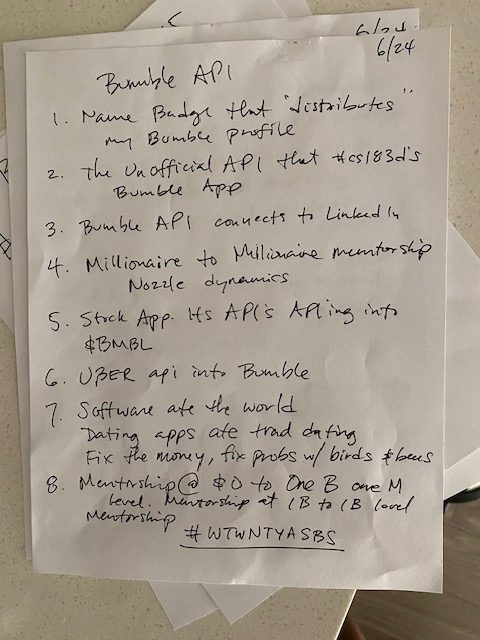 6/24
6/24
Bumble API
1. Name Badge that "distributes"
my Bumble profile
2. The Unofficial API that #cs183d's
Bumble App
3. Bumble API connects to LinkedIn
4. Millionaire to Millionaire mentorship
Nozzle dynamics
5. Stock App. Its API's APIing into
$BMBL
6. UBER api into Bumble
7. Software ate the world
Dating apps ate trad dating
Fix the money, fix probs w/ birds & bees
8. Mentorship @ $0 to One B one M
level. Mentorship at 1B to 1B level
Mentorship
#WTWNTYASBS